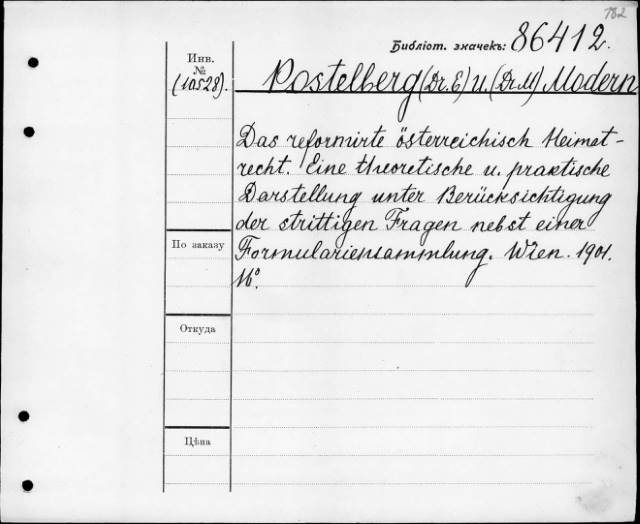 782
Библіот. значекъ: 86412.
Инв.
№
(10528).
Postelberg (Dr. E) u. (Dr. M) Modern
Das reformirte österreichisch Heimat-
recht. Eine theoretische u. praktische
Darstellung unter Berücksichtigung
der strittigen Fragen nebst einer
Formulariensammlung. Wien. 1901.
По заказу
Откуда
Цѣна